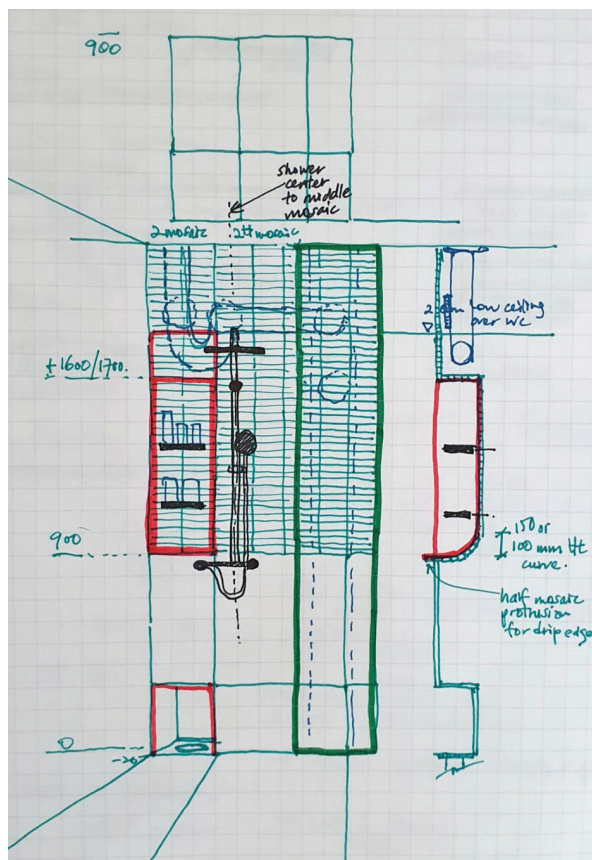 900
shower
center
to middle
mosaic
2 mosaic
2tt mosaic
low ceiling
over wc
± 1600/1700.
900
150 or
100 mm Ht
curve.
half mosaic
protrusion
for drip edge
0
-20